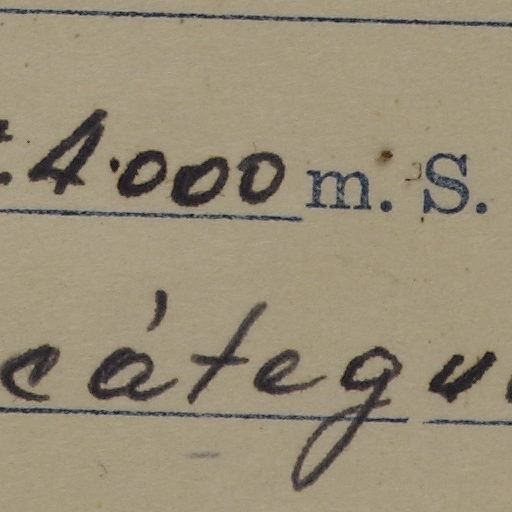 4.000 m. S.
cátegu